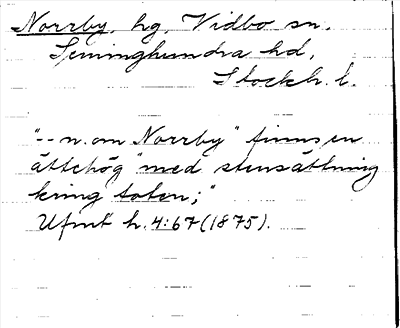 Norrby, hg, Vidbo sn,
Seminghundra hd,
Stockh. l.
"-- n. om Norrby" finns en
ättehög "med stensättning
kring foten;"
Ufmt h. 4:67 (1875).